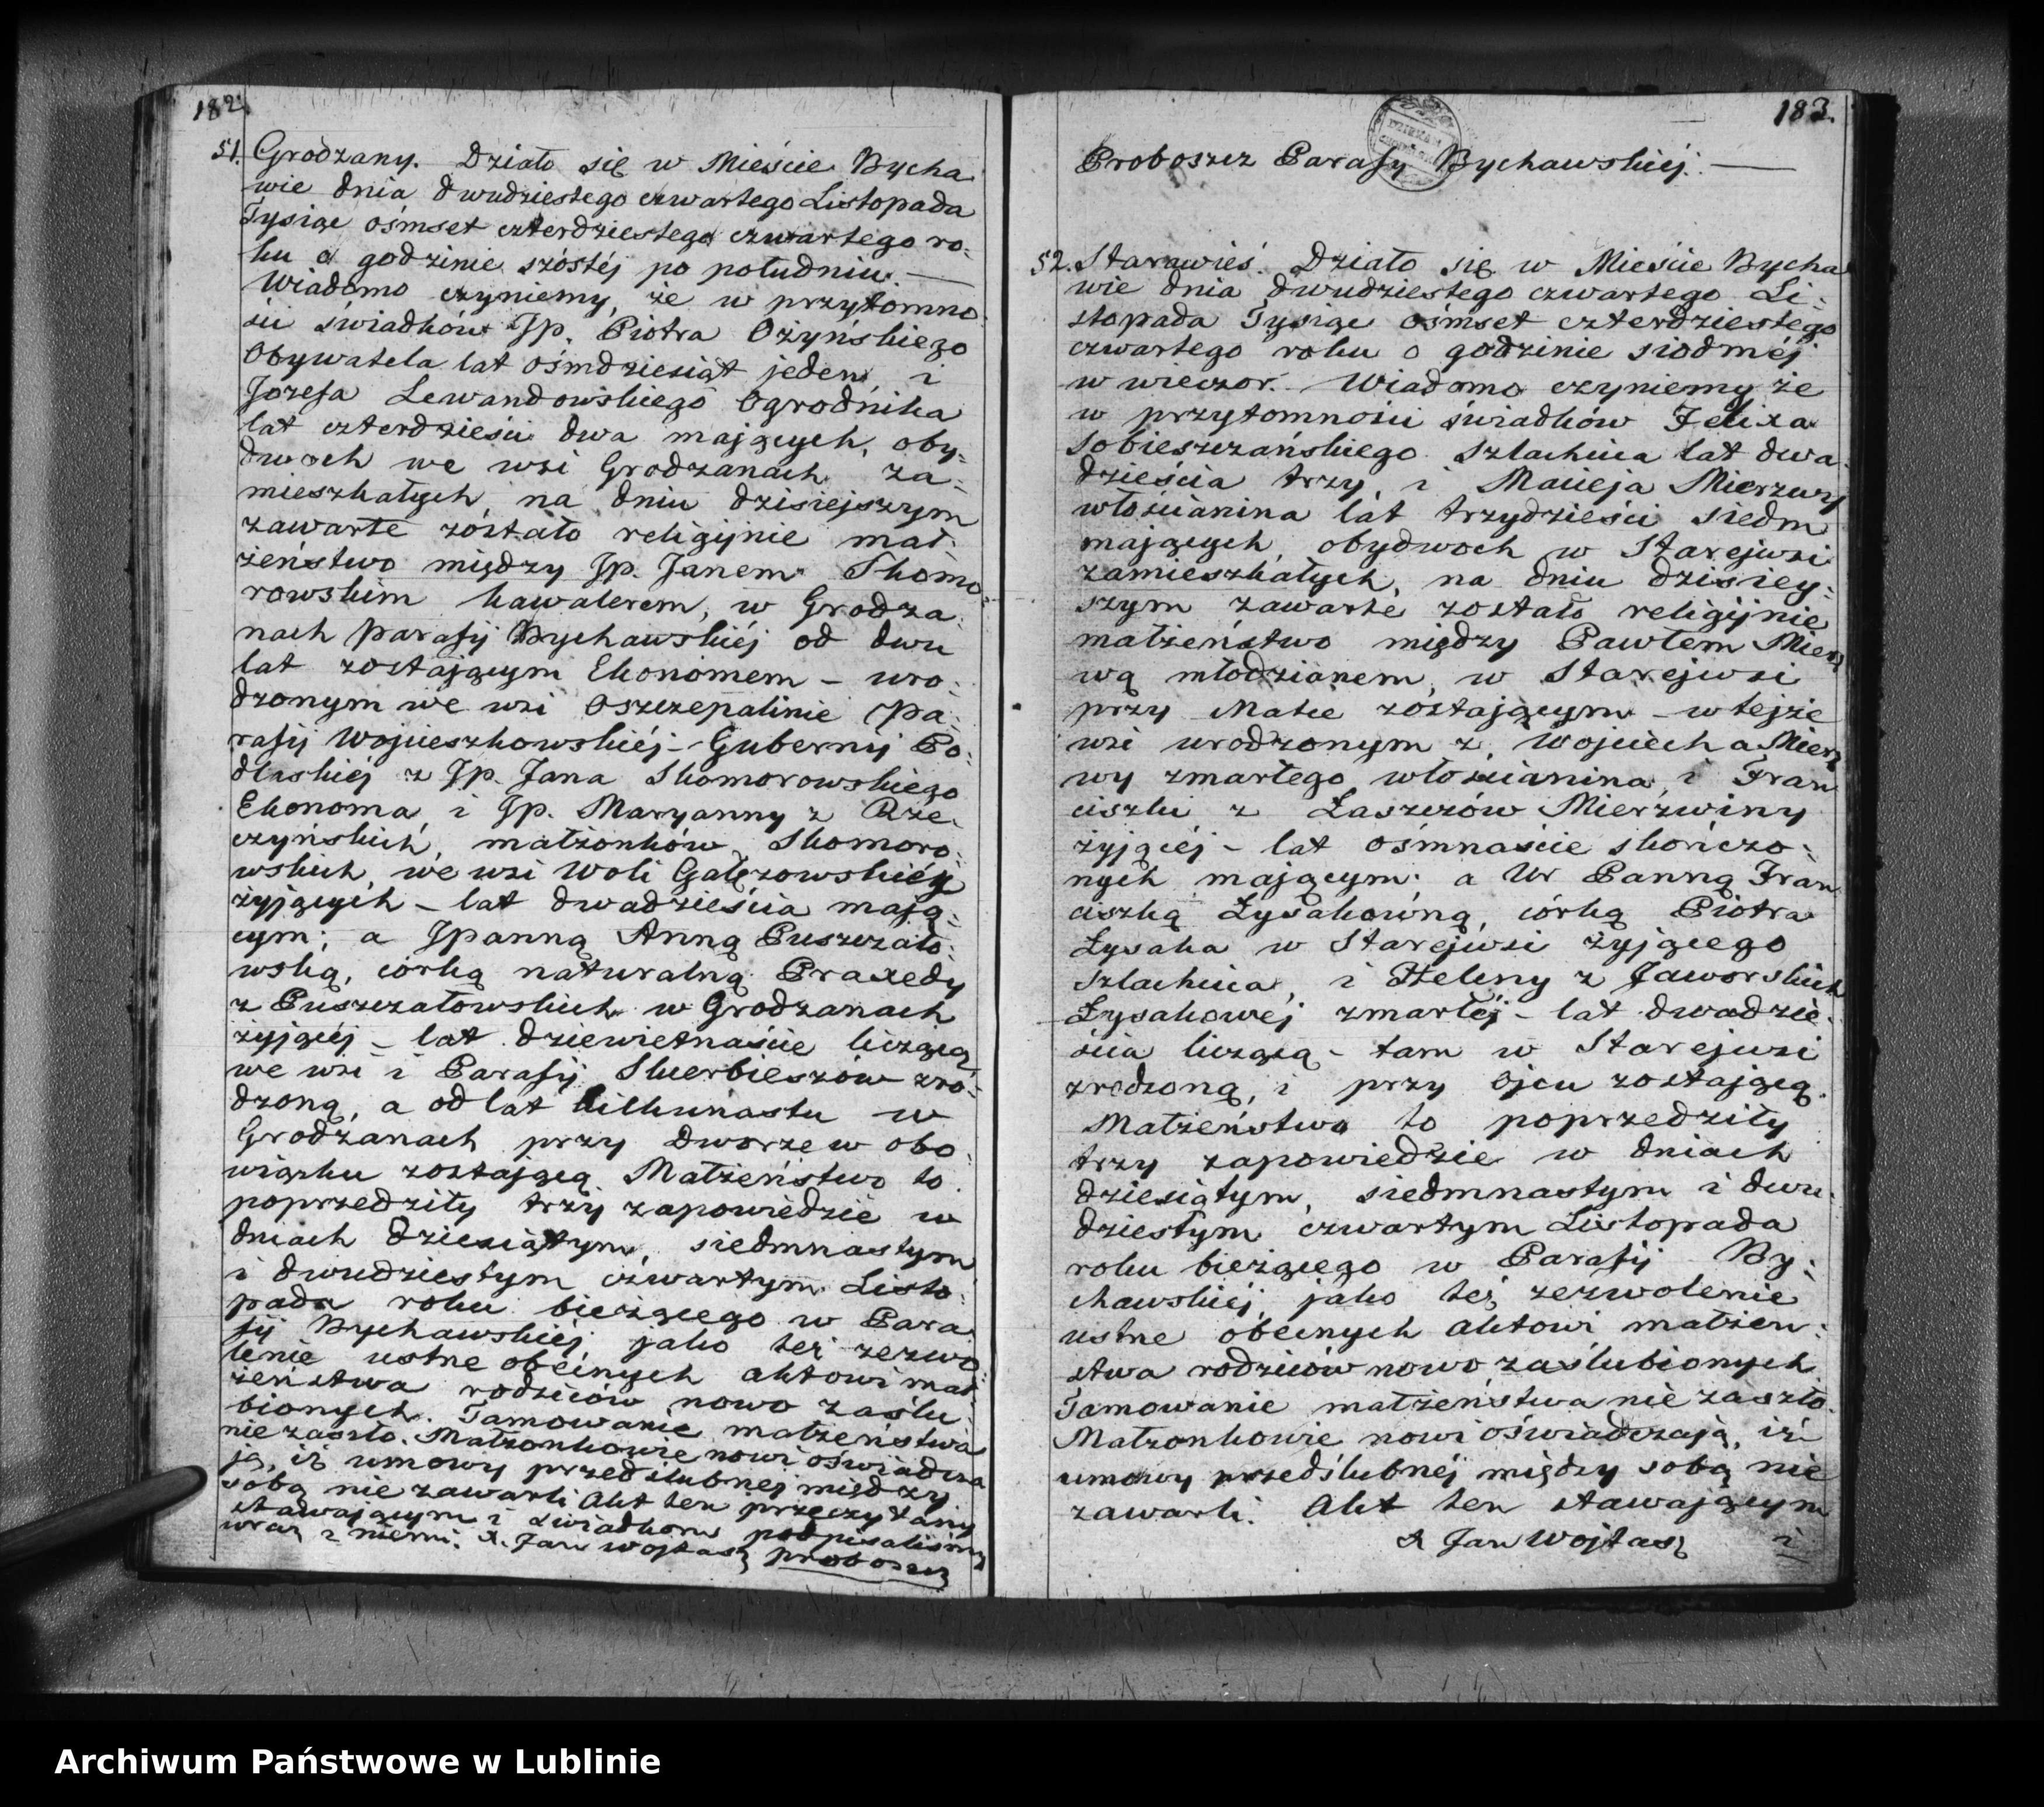 182.
51. Grodzany. Działo się w Mieście Bycha
wie dnia dwudziestego czwartego Listopada
Tysiąc ośmset czterdziestego czwartego ro-
ku o godzinie szóstéj po południu. —
Wiadomo czyniemy, że w przytomno
ści świadków Jp. Piotra Ozyńskiego
Obywatela lat ośmdziesiąt jeden, i
Józefa Lewandowskiego Ogrodnika
lat czterdzieści dwa mających, oby-
dwoch we wsi Grodzanach za-
mieszkałych, na dniu dzisiejszym
zawarte zostało religijnie mał-
żeństwo między Jp. Janem Skomo-
rowskim kawalerem, w Grodza
nach parafij Bychawskiéj od dwu
lat zostającym Ekonomem – uro-
dzonym we wsi Oszczepalinie pa-
rafij Wojcieszkowskiéj – Gubernij Po-
dlaskiéj z Jp. Jana Skomorowskiego
Ekonoma i Jp. Maryanny z Rze-
czyńskich, małżonków Skomoro-
wskich, we wsi Woli Gałęzowskiéj
żyjących – lat dwadzieścia mają-
cym; a Jpanną Anną Puszczało-
wską, córką naturalną Praxedy
z Puszczałowskich w Grodzanach
żyjącéj – lat dziewiętnaście liczącą
we wsi i Parafij Skierbieszów zro-
dzoną, a od lat kilkunastu w
Grodzanach przy dworze w obo-
wiązku zostającą. Małżeństwo to
poprzedziły trzy zapowiedzie w
dniach dziesiątym, siedmnastym
i dwudziestym czwartym Listo-
pada roku bieżącego w Para
fij Bychawskiéj, jako też zezwo-
lenie ustne obecnych aktowi mał
żeństwa rodziców nowo zaślu-
bionych. Tamowanie małżeństwa
nie zaszło. Małżonkowie nowi oświadcza
ją, iż umowy przedślubnej między
sobą nie zawarli Akt ten przeczytany
stawającym i świadkom podpisaliśmy
wraz z niemi. X. Jan Wojtasz proboszcz
183.
Proboszcz Parafij Bychawskiéj. —
52. Starawieś. Działo się w Mieście Bycha
wie dnia dwudziestego czwartego Li-
stopada Tysiąc ośmset czterdziestego
czwartego roku o godzinie siodméj
w wieczor. Wiadomo czyniemy że
w przytomności świadków Felixa
Sobieszczańskiego Szlachcica lat dwa-
dzieścia trzy, i Macieja Mierzwy
włościanina lat trzydzieści siedm
mających, obydwoch w Starejwsi
zamieszkałych, na dniu dzisiey-
szym zawarte zostało religijnie
małżeństwo między Pawłem Mierz
wą młodzianem, w Starejwsi
przy Matce zostającym – w tejże
wsi urodzonym z Wojciecha Mierz
wy zmarłego włościanina i Fran
ciszki z Łaszczów Mierzwiny
żyjącéj – lat ośmnaście skończo-
nych mającym; a Ur Panną Fran
ciszką Łysakowną, córką Piotra
Łysaka w Starejwsi żyjącego
Szlachcica, i Heleny z Jaworskich
Łysakowej zmarłéj – lat dwadzie-
ścia liczącą – tam w Starejwsi
zrodzoną, i przy Ojcu zostającą.
Małżeństwo to poprzedziły
trzy zapowiedzie w dniach
dziesiątym, siedmnastym i dwu-
dziestym czwartym Listopada
roku bieżącego w Parafij By-
chawskiéj, jako też zezwolenie
ustne obecnych aktowi małżeń-
stwa rodziców nowo zaślubionych
Tamowanie małżeństwa nie zaszło.
Małżonkowie nowi oświadczają, iż
umowy przedślubnéj między sobą nie
zawarli. Akt ten stawającym
X Jan Wojtasz i
Archiwum Państwowe w Lublinie